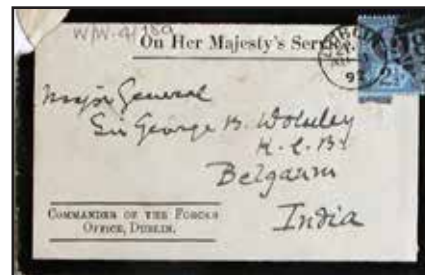 W/W.4/139
On Her Majesty's Service.
DUBLIN
93
2½
Major General
Sir George B. Wolseley
K.C.B.
Belgaum
India
COMMANDER OF THE FORCES
OFFICE, DUBLIN.